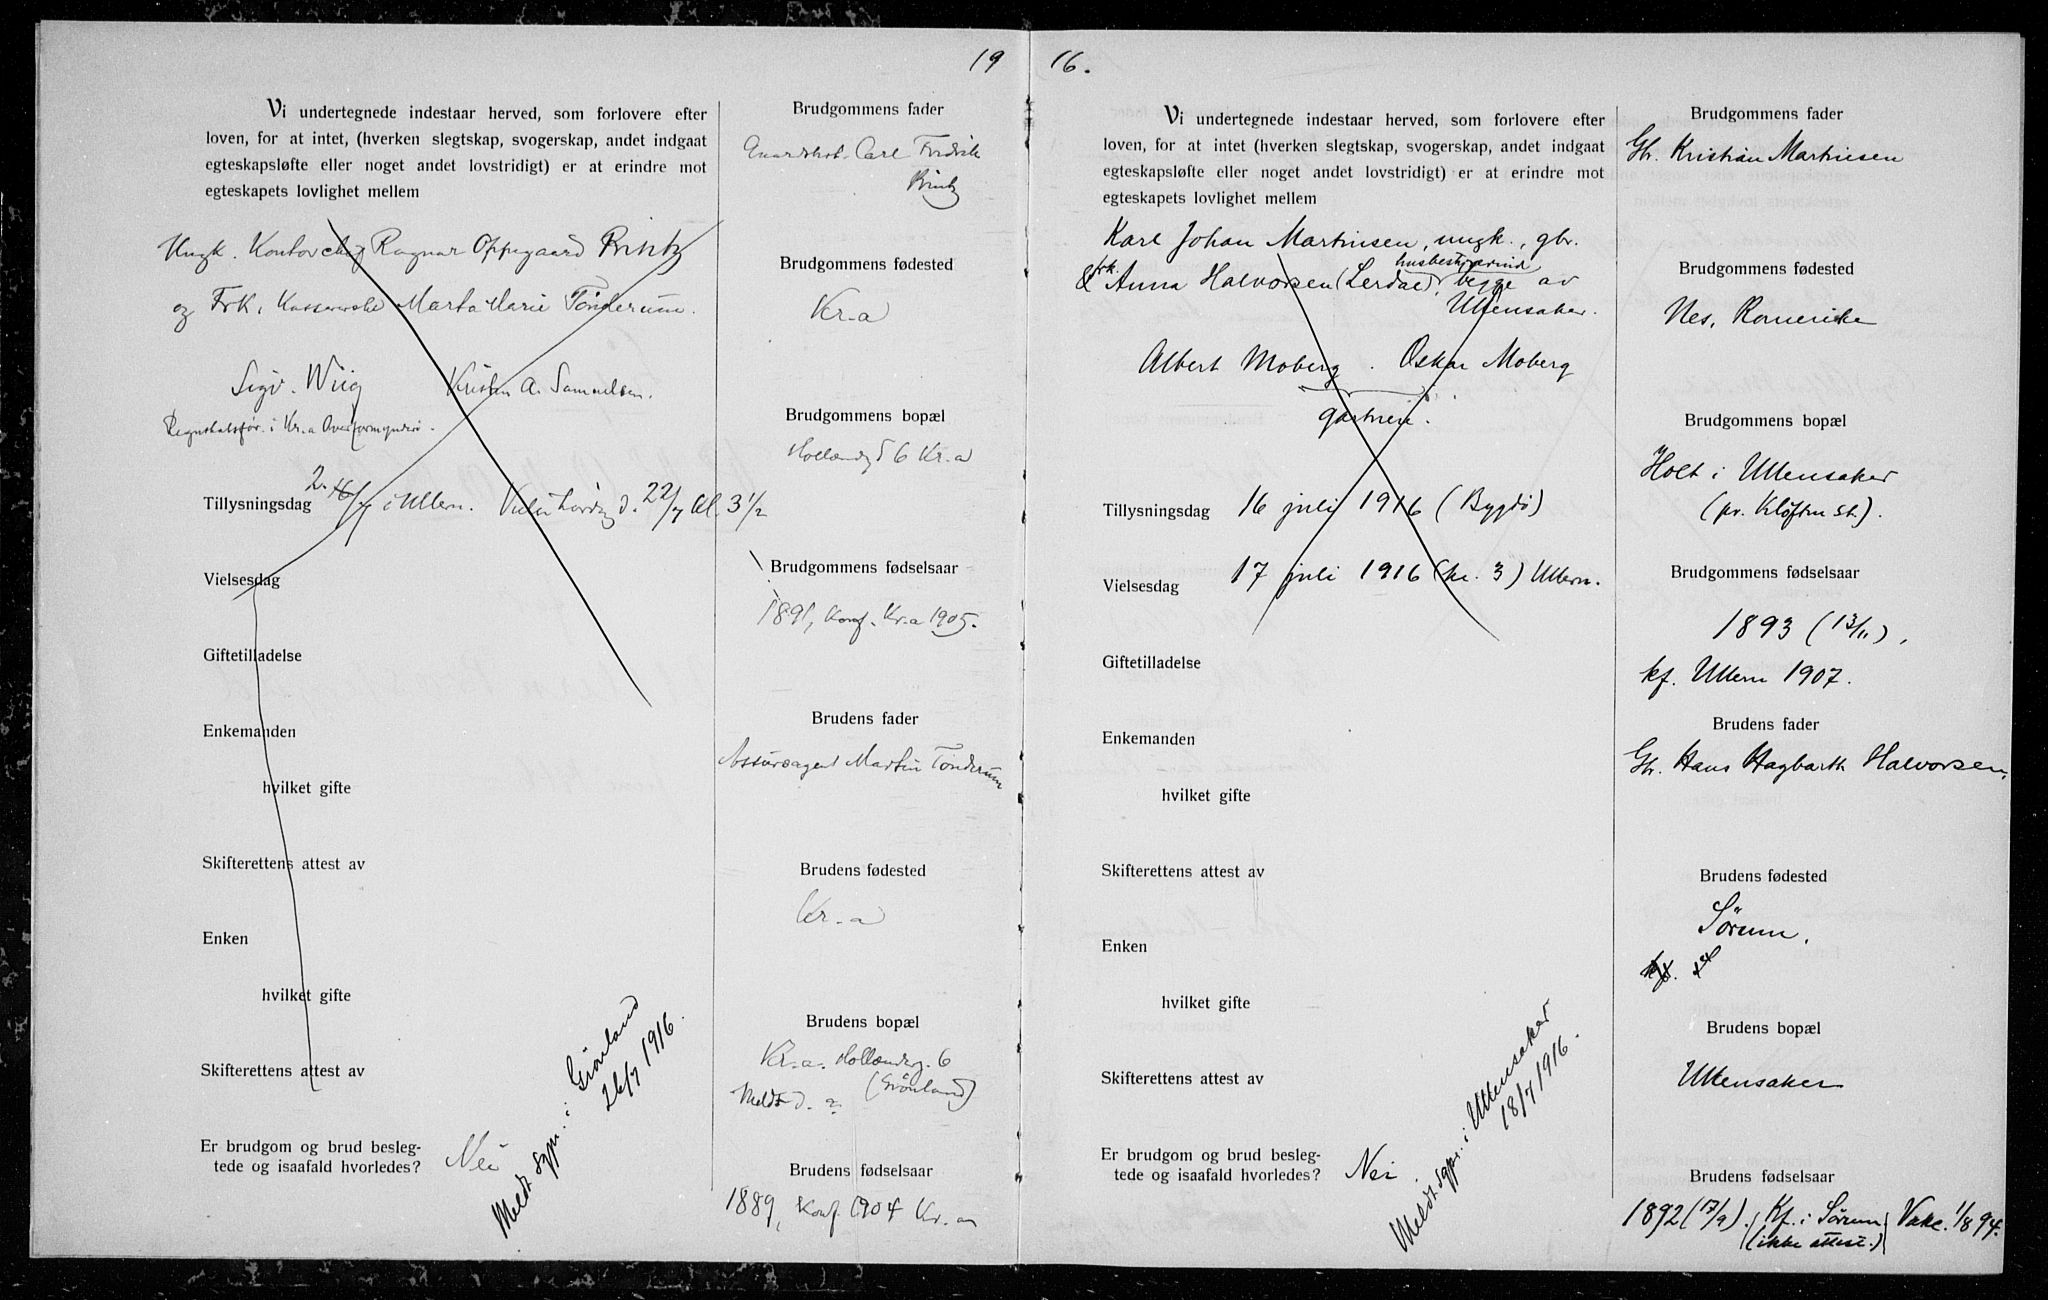 19 16.
Vi undertegnede indestaar herved, som forlovere efter
loven, for at intet, (hverken slegtskap, svogerskap, andet indgaat
egteskapsløfte eller noget andet lovstridigt) er at erindre mot
egteskapets lovlighet mellem
Ungk. Kontorchef Ragnar Oppegaard Printz
og Frk. Kassererske Marta Marie Tönderum.
Sigv. Wiig Kristen A. Samuelsen.
Regnskabsfør. i Kr.a Overformynderi.
Tillysningsdag 2. 16/7 i Ullern. Vielse Lørdag d. 22/7 kl. 3 1/2
Vielsesdag
Giftetilladelse
Enkemanden
hvilket gifte
Skifterettens attest av
Enken
hvilket gifte
Skifterettens attest av
Er brudgom og brud besleg-
tede og isaafald hvorledes? Nei
Meldt sgpr. i Grønland
26/7 1916.
Brudgommens fader
Carl Fredrik
Printz
Brudgommens fødested
Kr.a
Brudgommens bopæl
Hollendg 6 Kr.a
Brudgommens fødselsaar
1891, Konf. Kr.a 1905.
Brudens fader
Assuranceagent Martin Tönderum
Brudens fødested
Kr.a
Brudens bopæl
Kr.a. Hollænderg. 6
(Grønland)
Meldt d. a
Brudens fødselsaar
1889, Konf. 1904 Kr.a
Vi undertegnede indestaar herved, som forlovere efter
loven, for at intet (hverken slegtskap, svogerskap, andet indgaat
egteskapsløfte eller noget andet lovstridigt) er at erindre mot
egteskapets lovlighet mellem
Karl Johan Martinsen, ungk., gbr.
& frk. Anna Halvorsen (Lerdal), husbestyrerinde, begge av
Ullensaker.
Albert Moberg. Oskar Moberg
gartneri.
Tillysningsdag 16 juli 1916 (Bygdø)
Vielsesdag 17 juli 1916 (kl. 3) Ullern.
Giftetilladelse
Enkemanden
hvilket gifte
Skifterettens attest av
Enken
hvilket gifte
Skifterettens attest av
Er brudgom og brud besleg-
tede og isaafald hvorledes? Nei.
Meldt sgpr. i Ullensaker
18/7 1916.
Brudgommens fader
Gb. Kristian Martinsen
Brudgommens fødested
Nes, Romerike
Brudgommens bopæl
Holt i Ullensaker
(pr. Kløften st.).
Brudgommens fødselsaar
1893 (13/11),
kf. Ullern 1907.
Brudens fader
Gb. Hans Hagbarth Halvorsen,
Brudens fødested
Sørum.
Brudens bopæl
Ullensaker
Brudens fødselsaar
1892 (17/9). (Kf. i Sørum) Vakc. 1/8 94.
(ikke attest.)